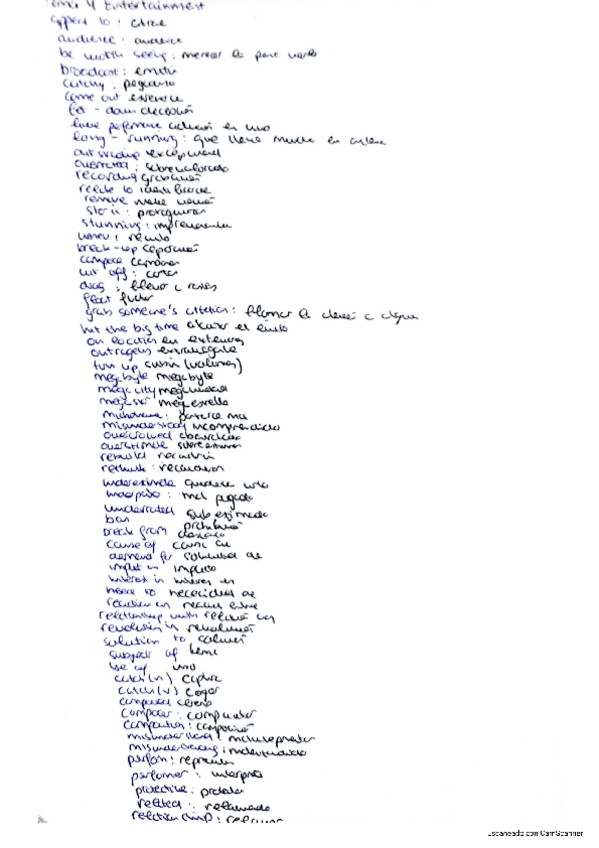 Tema 4 Entertainment
appeal to : atraer
audience : audiencia
be worth seeing : merecer la pena verlo
broadcast : emitir
catchy : pegadizo
come out estrenarse
let-down decepción
live performance actuación en vivo
long-running : que lleva mucho en cartel
outstanding excepcional
overrated : sobrevalorado
recording grabación
relate to identificarse
remake nueva versión
star in : protagonizar
stunning : impresionante
break-up separación
compose componer
cut off : cortar
drag : llevar a rastras
float flotar
grab someone's attention : llamar la atención a alguien
hit the big time alcanzar el éxito
on location en exteriores
outrageous extravagante
turn up subir (volumen)
megabyte megabyte
megacity megaciudad
megastar megaestrella
misunderstood incomprendido
overcrowded abarrotado
overestimate sobreestimar
rebuild reconstruir
rethink : reconsiderar
underestimate
underpaid : mal pagado
underrated subestimado
ban prohibición
break from descanso
cause of causa de
demand for solicitud de
impact on impacto
interest in interés en
need to necesidad de
reaction on
relationship with relación con
revolution in revolución
solution to solución
subject of tema
use of uso
catch (n) captura
catch (v) coger
composed sereno
composer : compositor
composition : composición
misunderstand : malinterpretar
misunderstanding : malentendido
perform : representar
performer : intérprete
protective : protector
related : relacionado
relationship :
Escaneado con CamScanner